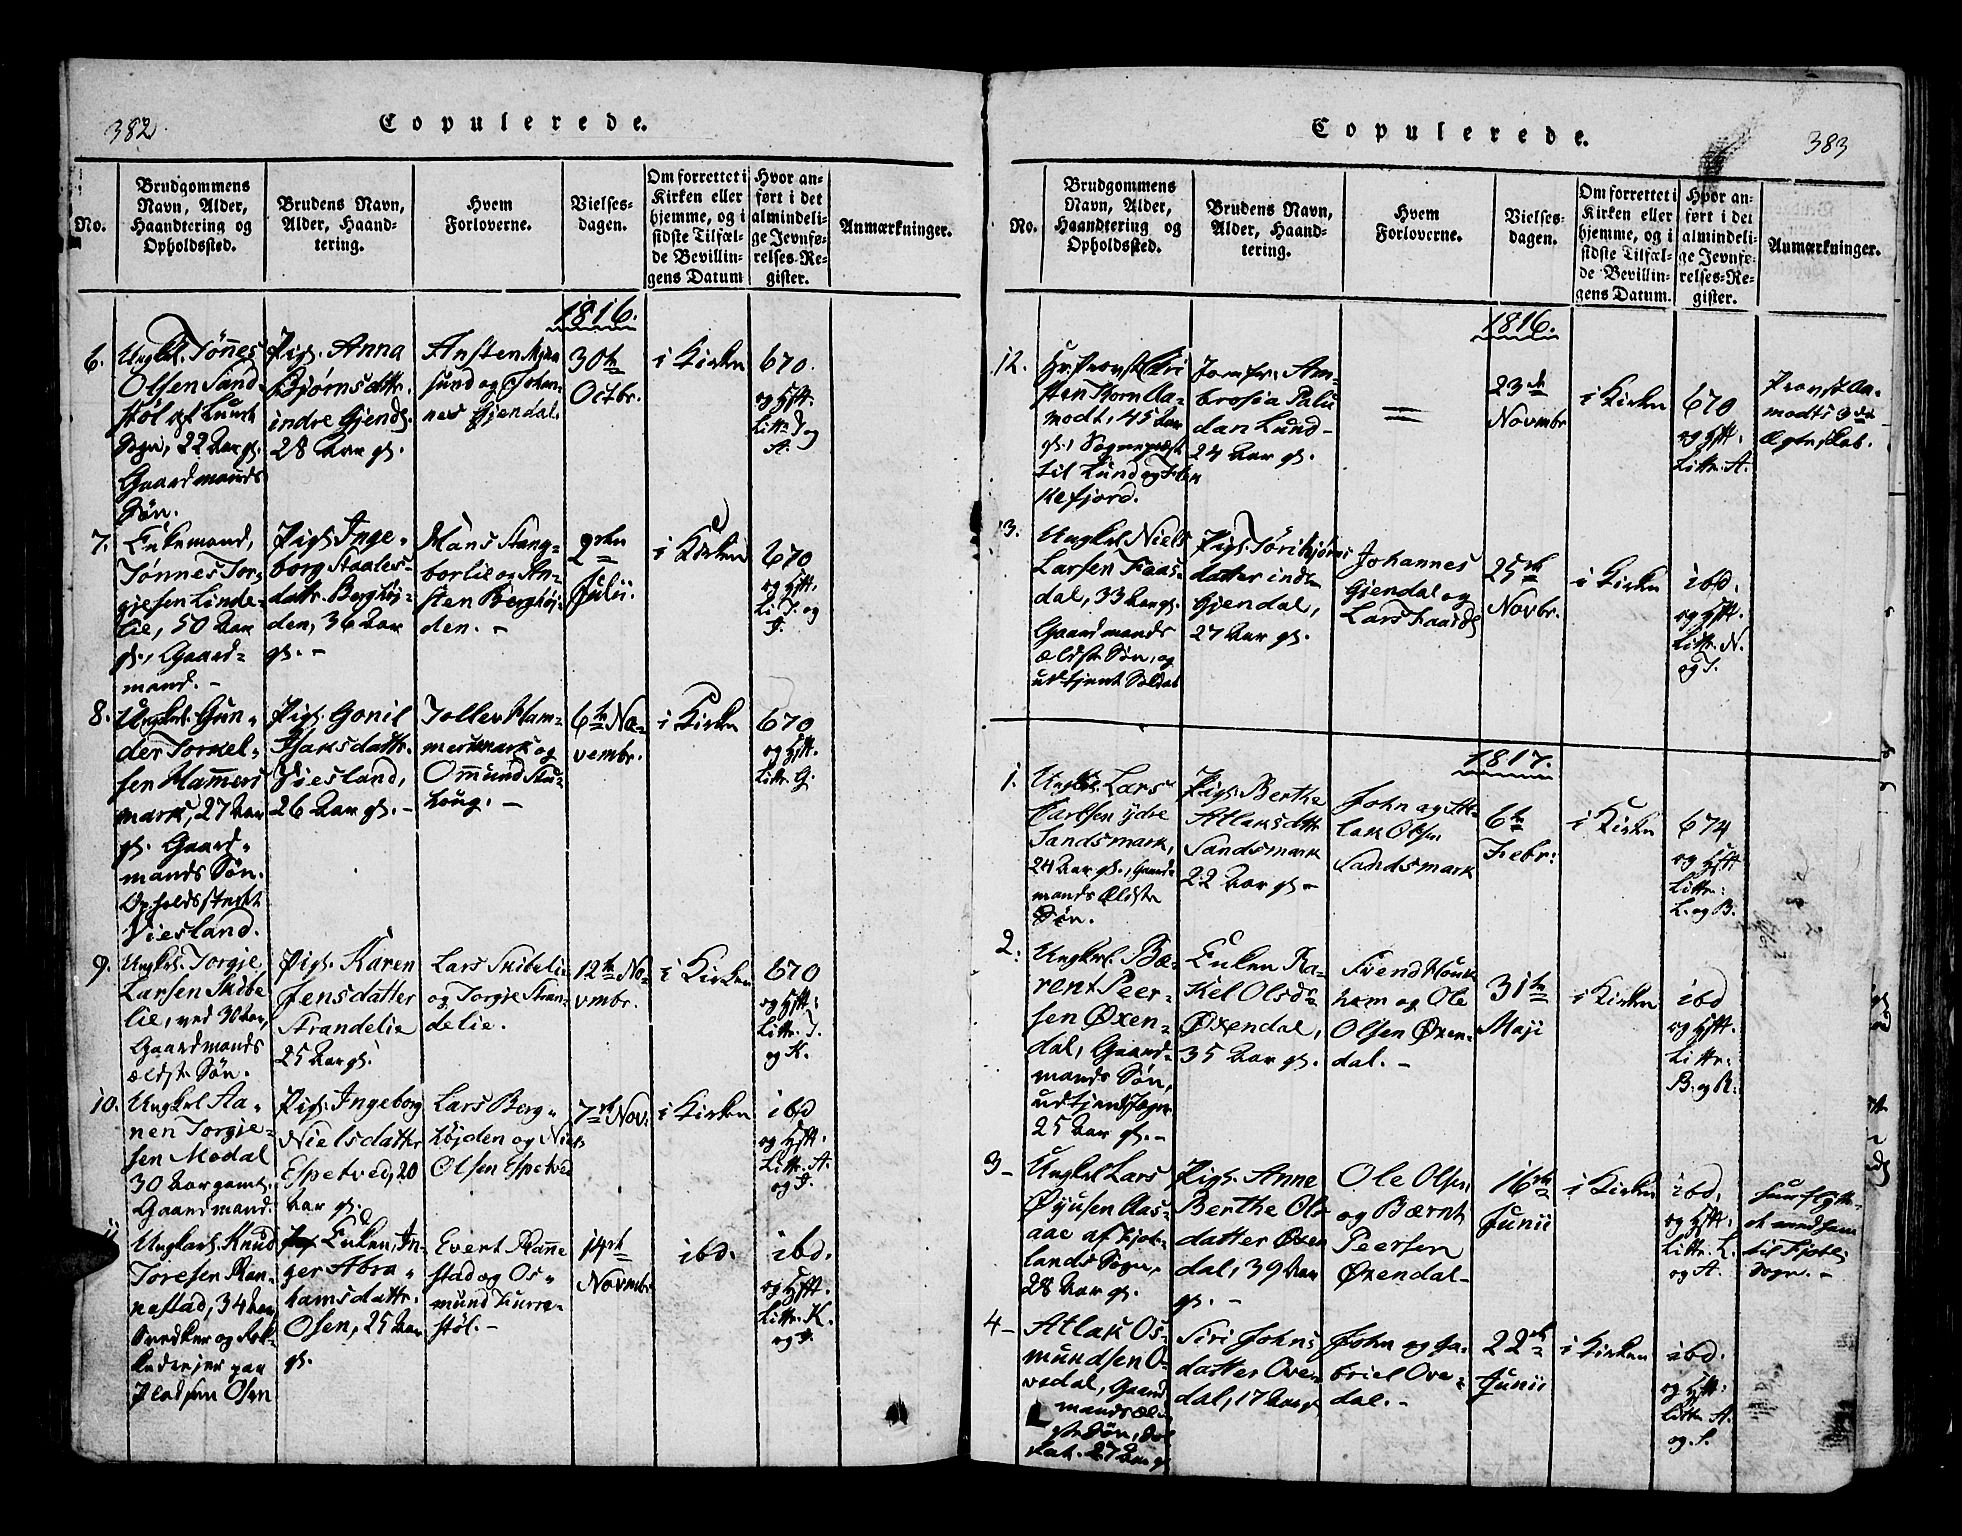 382
Copulerede.
No.
Brudgommens
Navn, Alder,
Haandtering og
Opholdssted.
Brudens Navn,
Alder, Haand-
tering.
Hvem
Forloverne.
Vielses-
dagen.
Om forrettet i
Kirken eller
hjemme, og i
sidste Tilfæl-
de Bevillin-
gens Datum
Hvor an-
ført i det
almindeli-
ge Jevnfø-
relses-Re-
gister.
Anmærkninger.
1816.
6.
Ungkl. Tönnes
Olsen Sand-
stöl af Lunde
Sogn, 22 Aar gl.
Gaardmands
Søn.
Pige Anna
Bjørnsdattr.
indre Gjend.
28 Aar gl.
Ansten
sund og Johan-
nes Gjendal.
30te
Octbr.
i Kirken
670.
og Hft.
Littr. T og
A.
7.
Enkemand,
Tønnes Tor-
gjesen Linde-
lie, 50 Aar
gl., Gaard-
mand. -
Pige Inge-
borg Staales-
dattr. Berghøj-
den, 36 Aar
gl. -
Hans Stang-
borlie og An-
sten Berghøj-
den. -
2den
Julii.
i Kirken
670
og Hft.
Li. T. og
I.
8.
Ungkl. Gun-
der Torkel-
sen Hamers
mark, 27 Aar
gl. Gaard-
mands Søn.
Opholdsstedt
Viesland.
Pige Gonil
Isaksdattr.
Viesland,
26 Aar gl. -
Tollev Ham-
mersmark og
Omund Stu-
houg. -
6te No-
vembr.
i Kirken
670
og Hft.
Littr. G.
9.
Ungkl. Torgje
Larsen Skibe
lie, ved 30 Aar,
Gaardmands
ældste Søn.
Pige Karen
Jensdatter
Strandelie
25 Aar gl.
Lars Skibelie
og Torgje Stran-
delie.
12te No-
vmbr.
i Kirken
670
og Hft.
Littr. T.
og K.
10.
Ungkl Aa-
nen Torgje-
sen Modal
30 Aar gamt.
Gaardmand.
Pige Ingeborg
Nielsdatter
Espetved, 20
Aar gl.
Lars Berg-
højden og Niels
Olsen Espetved
7de Nov.
i Kirken
ibd
og Hft.
Littr. A.
og I.
11
Ungkarl. Knud
Toresen Ran-
nestad, 34 Aar
Snedker og
paa
Pladsen Osen
Enken, In-
ger Abra-
hamsdattr.
Osen, 25 Aar
gl.
Evert Ranne
stad og Os-
mund Kurre-
støl. -
14de
Novmbr
ibd.
ibd.
og Hft.
Littr. K.
og I.
383
Copulerede.
No.
Brudgommens
Navn, Alder,
Haandtering og
Opholdssted.
Brudens Navn,
Alder, Haand-
tering.
Hvem
Forloverne.
Vielses-
dagen.
Om forrettet i
Kirken eller
hjemme, og i
sidste Tilfæl-
de Bevillin-
gens Datum.
Hvor an-
ført i det
almindeli-
ge Jevnfø-
relses-Re-
gister.
Anmærkninger.
1816.
12.
Hr. Provst Kri
sten Horn Aa-
modt, 45 Aar
gl., Sognepræst
til Lund og Flek
kefjord.
Jomfr. Am-
brosia Palu
dan Lund-
24 Aar gl.
=
23de
Novmbr
i Kirken
670
og Hft.
Littr. A.
Provst Aa-
modts 3die
Ægteskab.
13.
Ungkl Niels
Larsen Faas-
dal, 33 Aar gl.
Gaardmands
ældste Søn, og
udtjent Soldat
Pige Töri Björns
datter indre
Gjendal,
27 Aar gl.
Johannes
Gjendal og
Lars Faasd.
25de
Novbr.
i Kirken
ibd.
og Hft.
Littr. N.
og T.
1817.
1.
Ungkl. Lars
Karlsen ydre
Sandsmark,
24 Aar gl., Gaard-
mands Ældste
Søn.
Pige Berthe
Atlaksdattr
Sandsmark
22 Aar gl -
John og At-
lak Olsen
Sandsmark
6te
Febr:
i Kirken
674
og Hft
Littr:
L. og B.
2.
Ungkl. Bæ-
rent Peer-
sen Øxen-
dal, Gaard-
mands Søn,
udtjent
25 Aar gl. -
Enken Ra-
kel Olsd.
Øxendal,
35 Aar gl.
Svend Houk
hom og Ole
Olsen Øxen-
dal. -
31te
Maji
i Kirken
ibd
og Hft.
Littr.
B: og R:
3 -
Ungkl Lars
Øjusen Aas-
aae af Fjot-
lands Sogn,
28 Aar gl.
Pige Anne
Berthe Ols
datter Øxen
dal, 39 Aar
gl. -
Ole Olsen
og Bærnt
Peersen
Øxendal-
16de
Junii
i Kirken
ibd.
og Hft.
Littr. L.
og A.
til Fjotl.
Sogn. -
4 -
Atlak Os-
mundsen O-
vedal, Gaard
mands æl-
ste Søn, Sol
dat. 27 Aar gl
Siri Johns
datter Ove-
dal, 17 Aar gl.
John og Ga-
briel Ove-
dal. -
22de
Junii
i Kirken
ibd.
og Hft.
Littr. A.
og. S.